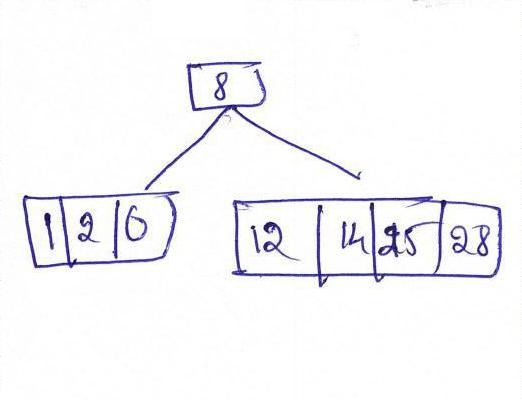 8
1 2 6
12 14 25 28